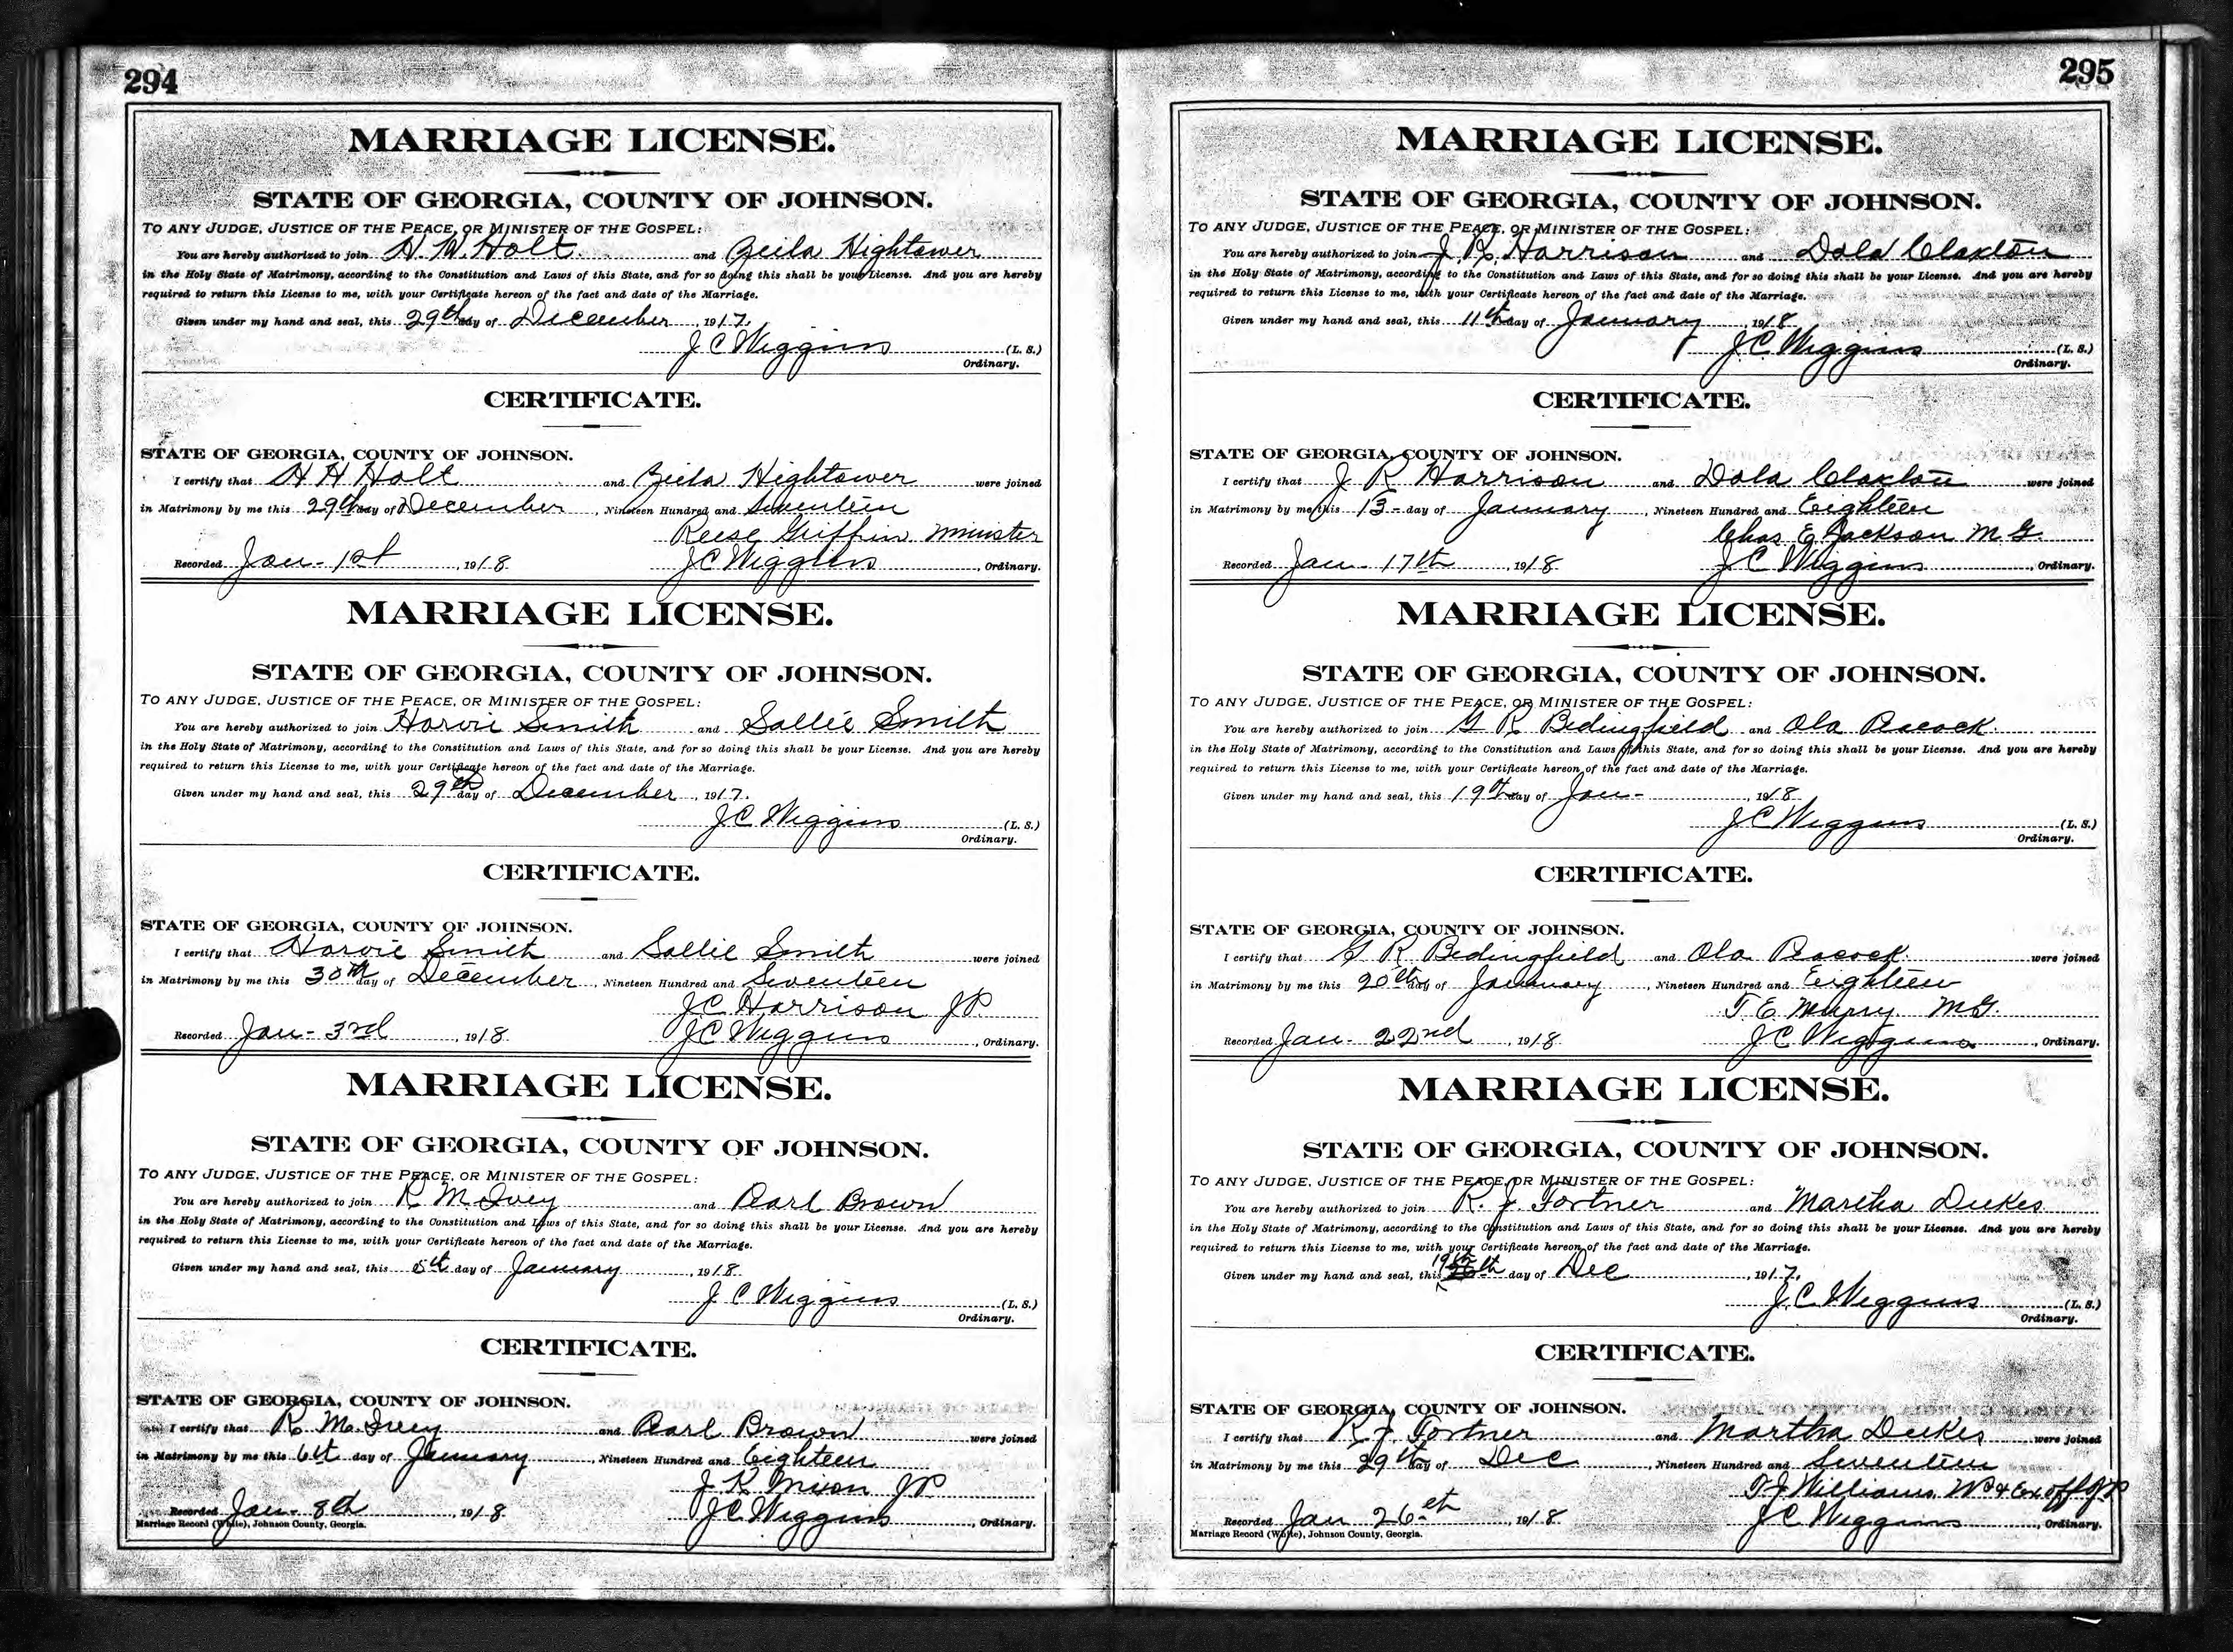 294
MARRIAGE LICENSE.
STATE OF GEORGIA, COUNTY OF JOHNSON.
TO ANY JUDGE, JUSTICE OF THE PEACE, OR MINISTER OF THE GOSPEL:
You are hereby authorized to join H. W. Holt and Zeila Hightower
in the Holy State of Matrimony, according to the Constitution and Laws of this State, and for so doing this shall be your License. And you are hereby
required to return this License to me, with your Certificate hereon of the fact and date of the Marriage.
Given under my hand and seal, this 29th day of December, 1917.
J C Wiggins (L. S.)
Ordinary.
CERTIFICATE.
STATE OF GEORGIA, COUNTY OF JOHNSON.
I certify that H H Holt and Zeila Hightower were joined
in Matrimony by me this 29th day of December, Nineteen Hundred and Seventeen
Reese Griffin Minister
Recorded Jan - 1st, 1918 J C Wiggins, Ordinary.
MARRIAGE LICENSE.
STATE OF GEORGIA, COUNTY OF JOHNSON.
TO ANY JUDGE, JUSTICE OF THE PEACE, OR MINISTER OF THE GOSPEL:
You are hereby authorized to join Harvie Smith and Sallie Smith
in the Holy State of Matrimony, according to the Constitution and Laws of this State, and for so doing this shall be your License. And you are hereby
required to return this License to me, with your Certificate hereon of the fact and date of the Marriage.
Given under my hand and seal, this 29th day of December, 1917.
J C Wiggins (L. S.)
Ordinary.
CERTIFICATE.
STATE OF GEORGIA, COUNTY OF JOHNSON.
I certify that Harvie Smith and Sallie Smith were joined
in Matrimony by me this 30th day of December, Nineteen Hundred and Seventeen
J C Harrison JP
Recorded Jan - 3rd, 1918 J C Wiggins, Ordinary.
MARRIAGE LICENSE.
STATE OF GEORGIA, COUNTY OF JOHNSON.
TO ANY JUDGE, JUSTICE OF THE PEACE, OR MINISTER OF THE GOSPEL:
You are hereby authorized to join R M Ivey and Pearl Brown
in the Holy State of Matrimony, according to the Constitution and Laws of this State, and for so doing this shall be your License. And you are hereby
required to return this License to me, with your Certificate hereon of the fact and date of the Marriage.
Given under my hand and seal, this 5th day of January, 1918
J C Wiggins (L. S.)
Ordinary.
CERTIFICATE.
STATE OF GEORGIA, COUNTY OF JOHNSON.
I certify that R. M. Ivey and Pearl Brown were joined
in Matrimony by me this 6th day of January, Nineteen Hundred and Eighteen
J K Mixon JP
Recorded Jan - 8th, 1918 J C Wiggins, Ordinary.
Marriage Record (White), Johnson County, Georgia.
295
MARRIAGE LICENSE.
STATE OF GEORGIA, COUNTY OF JOHNSON.
TO ANY JUDGE, JUSTICE OF THE PEACE, OR MINISTER OF THE GOSPEL:
You are hereby authorized to join J. R. Harrison and Dola Claxton
in the Holy State of Matrimony, according to the Constitution and Laws of this State, and for so doing this shall be your License. And you are hereby
required to return this License to me, with your Certificate hereon of the fact and date of the Marriage.
Given under my hand and seal, this 11th day of January, 1918
J C Wiggins (L. S.)
Ordinary.
CERTIFICATE.
STATE OF GEORGIA, COUNTY OF JOHNSON.
I certify that J R Harrison and Dola Claxton were joined
in Matrimony by me this 13 - day of January, Nineteen Hundred and Eighteen
Chas E Jackson M. G.
Recorded Jan - 17th, 1918 J C Wiggins, Ordinary.
MARRIAGE LICENSE.
STATE OF GEORGIA, COUNTY OF JOHNSON.
TO ANY JUDGE, JUSTICE OF THE PEACE, OR MINISTER OF THE GOSPEL:
You are hereby authorized to join G R Bedingfield and Ola Peacock
in the Holy State of Matrimony, according to the Constitution and Laws of this State, and for so doing this shall be your License. And you are hereby
required to return this License to me, with your Certificate hereon of the fact and date of the Marriage.
Given under my hand and seal, this 19th day of Jan -, 1918
J C Wiggins (L. S.)
Ordinary.
CERTIFICATE.
STATE OF GEORGIA, COUNTY OF JOHNSON.
I certify that G R Bedingfield and Ola Peacock were joined
in Matrimony by me this 20th day of January, Nineteen Hundred and Eighteen
T E M. G.
Recorded Jan - 22nd, 1918 J C Wiggins, Ordinary.
MARRIAGE LICENSE.
STATE OF GEORGIA, COUNTY OF JOHNSON.
TO ANY JUDGE, JUSTICE OF THE PEACE, OR MINISTER OF THE GOSPEL:
You are hereby authorized to join R. J. Fortner and Martha Dukes
in the Holy State of Matrimony, according to the Constitution and Laws of this State, and for so doing this shall be your License. And you are hereby
required to return this License to me, with your Certificate hereon of the fact and date of the Marriage.
Given under my hand and seal, this 19th day of Dec, 1917.
J. C. Wiggins (L. S.)
Ordinary.
CERTIFICATE.
STATE OF GEORGIA, COUNTY OF JOHNSON.
I certify that R J Fortner and Martha Dukes were joined
in Matrimony by me this 29th day of Dec, Nineteen Hundred and Seventeen
T J Williams, NP & Ex off JP
Recorded Jan 26th, 1918 J C Wiggins, Ordinary.
Marriage Record (White), Johnson County, Georgia.